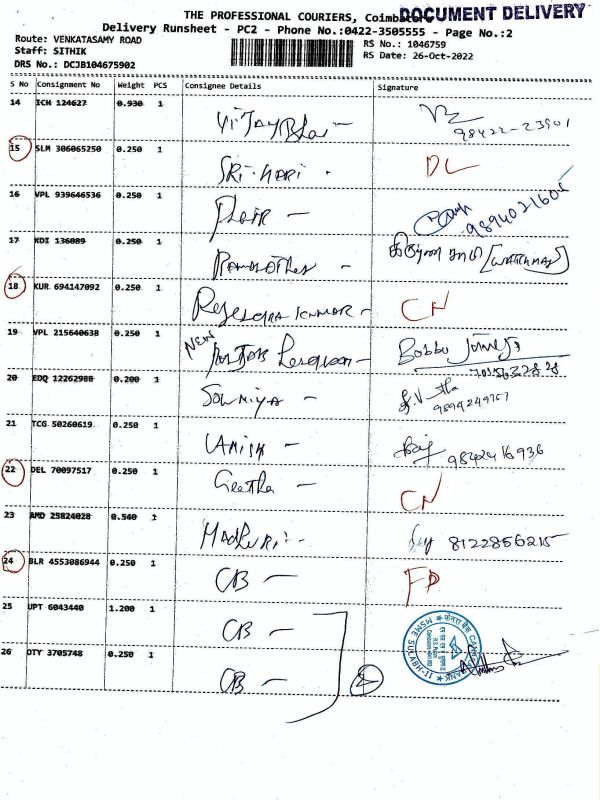 THE PROFESSIONAL COURIERS, Coimbatore
DOCUMENT DELIVERY
Delivery Runsheet - PC2 - Phone No.:0422-3505555 - Page No.:2
Route: VENKATASAMY ROAD
RS No.: 1046759
Staff: SITHIK
RS Date: 26-Oct-2022
DRS No.: DCJB104675902
S No Consignment No Weight PCS Consignee Details Signature
14 ICH 124627 0.930 1
98422-23901
15 SLM 306065250 0.250 1 SRI HARI . DL
16 VPL 939646536 0.250 1
9894021605
17 KDI 136089 0.250 1 [WATCHMAN]
18 KUR 694147092 0.250 1 CN
19 VPL 215640638 0.250 1 NEW Bobby
20 EDQ 12262988 0.200 1 Sowmiya -
9894249757
21 TCG 50260619 0.250 1 9842416936
22 DEL 70097517 0.250 1 Geetha - CN
23 AMD 25824028 0.540 1 MADHURI - 8122856215
24 BLR 4553086944 0.250 1 CB - FD
25 UPT 6043440 1.200 1 CB -
26 OTY 3705748 0.250 1 CB - 2